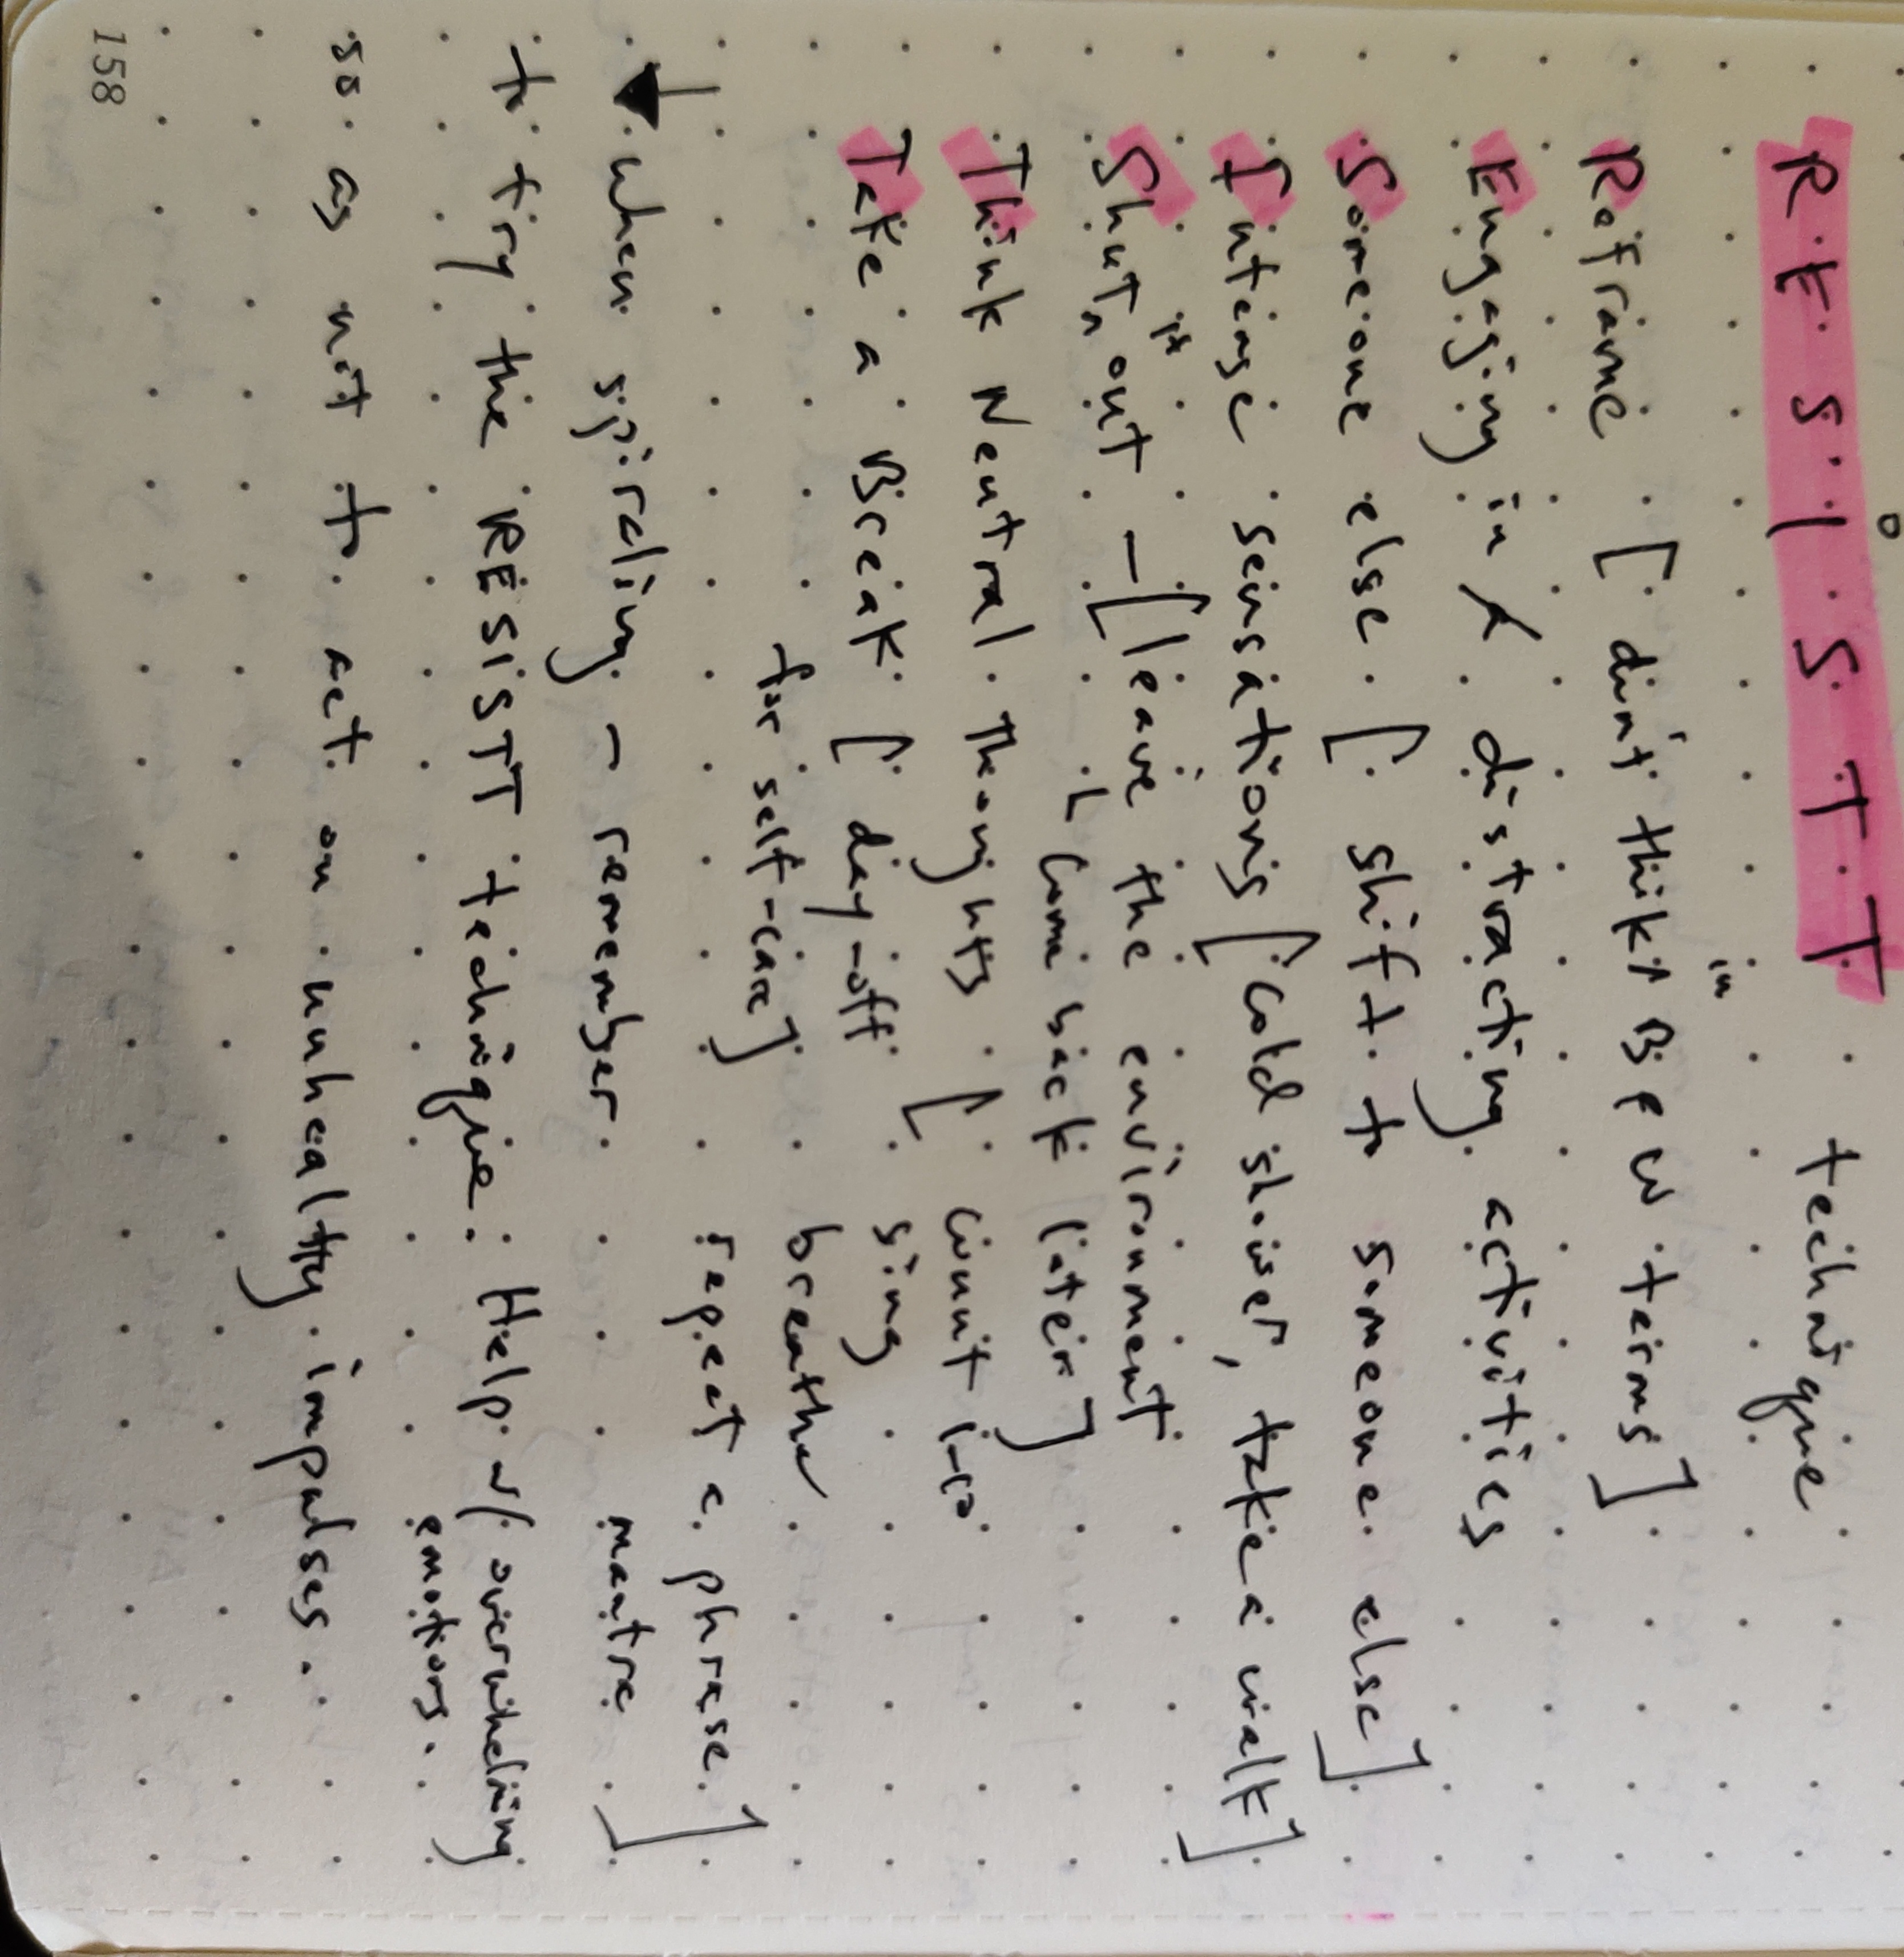 R E S i S T T technique
Reframe [ din't thik in B & W terms ]
Engaging in distracting activities
Someone else [ shift to someone else ]
Intense sensations [ cold shower, take a walk ]
Shut it out - [ leave the environment
come back later ]
Think Neutral Thoughts [ count 1-10
sing
breathe
repeat a phrase
mantra ]
Take a Break [ day-off
for self-care ]
when spiraling - remember
to try the RESISTT technique: Help w/ overwhelming
emotions.
so as not to act on unhealthy impulses.
158